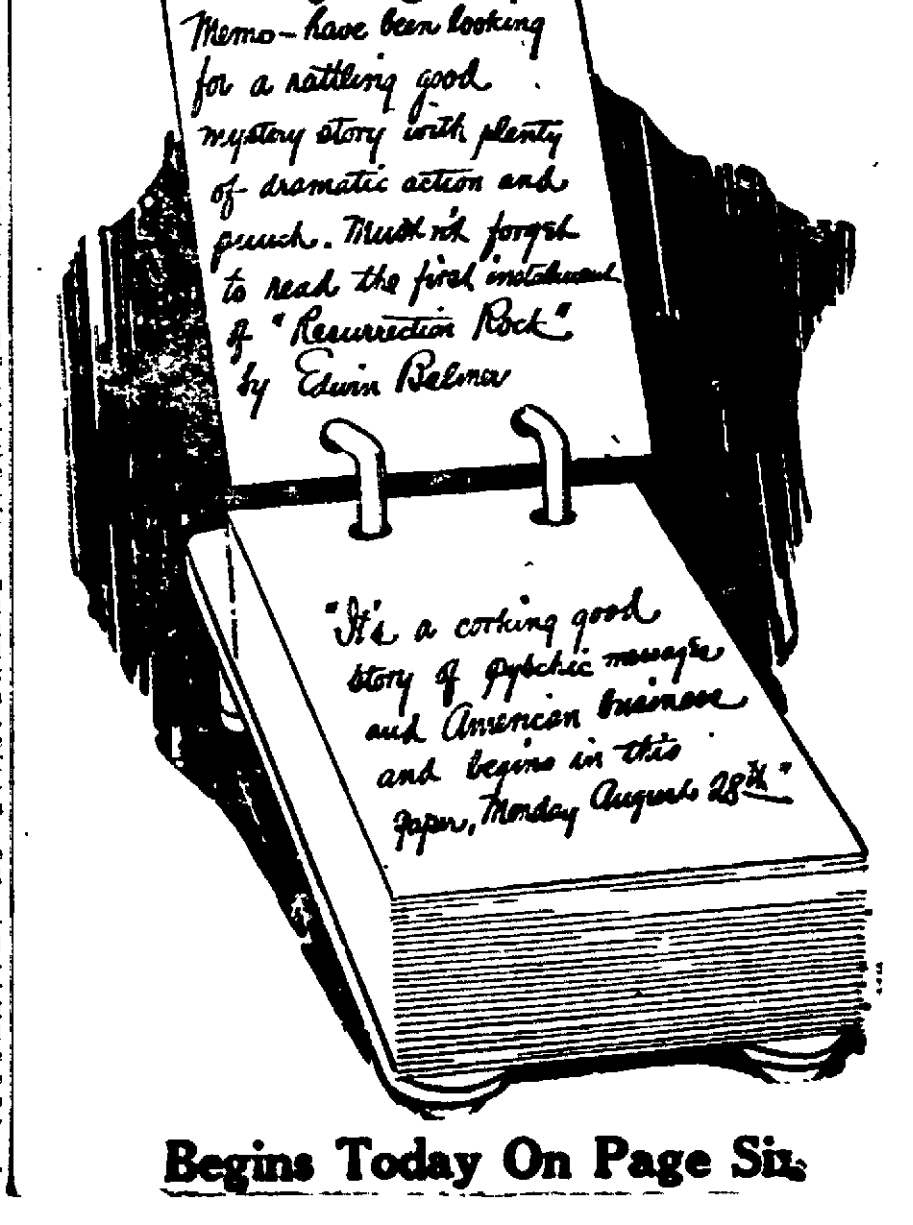 Memo – have been looking
for a rattling good
mystery story with plenty
of dramatic action and
punch. Mustn't forget
to read the first instalment
of "Resurrection Rock"
by Edwin Balmer
"It's a corking good
story of psychic messages
and American business
and begins in this
paper, Monday August 28th"
Begins Today On Page Six